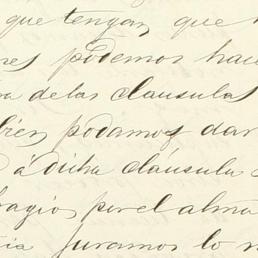 que tengan, que
res podemos hace
a de las clausulas
bien podamos dar
á dicha cláusula
ragios por el alma
tia juramos lo